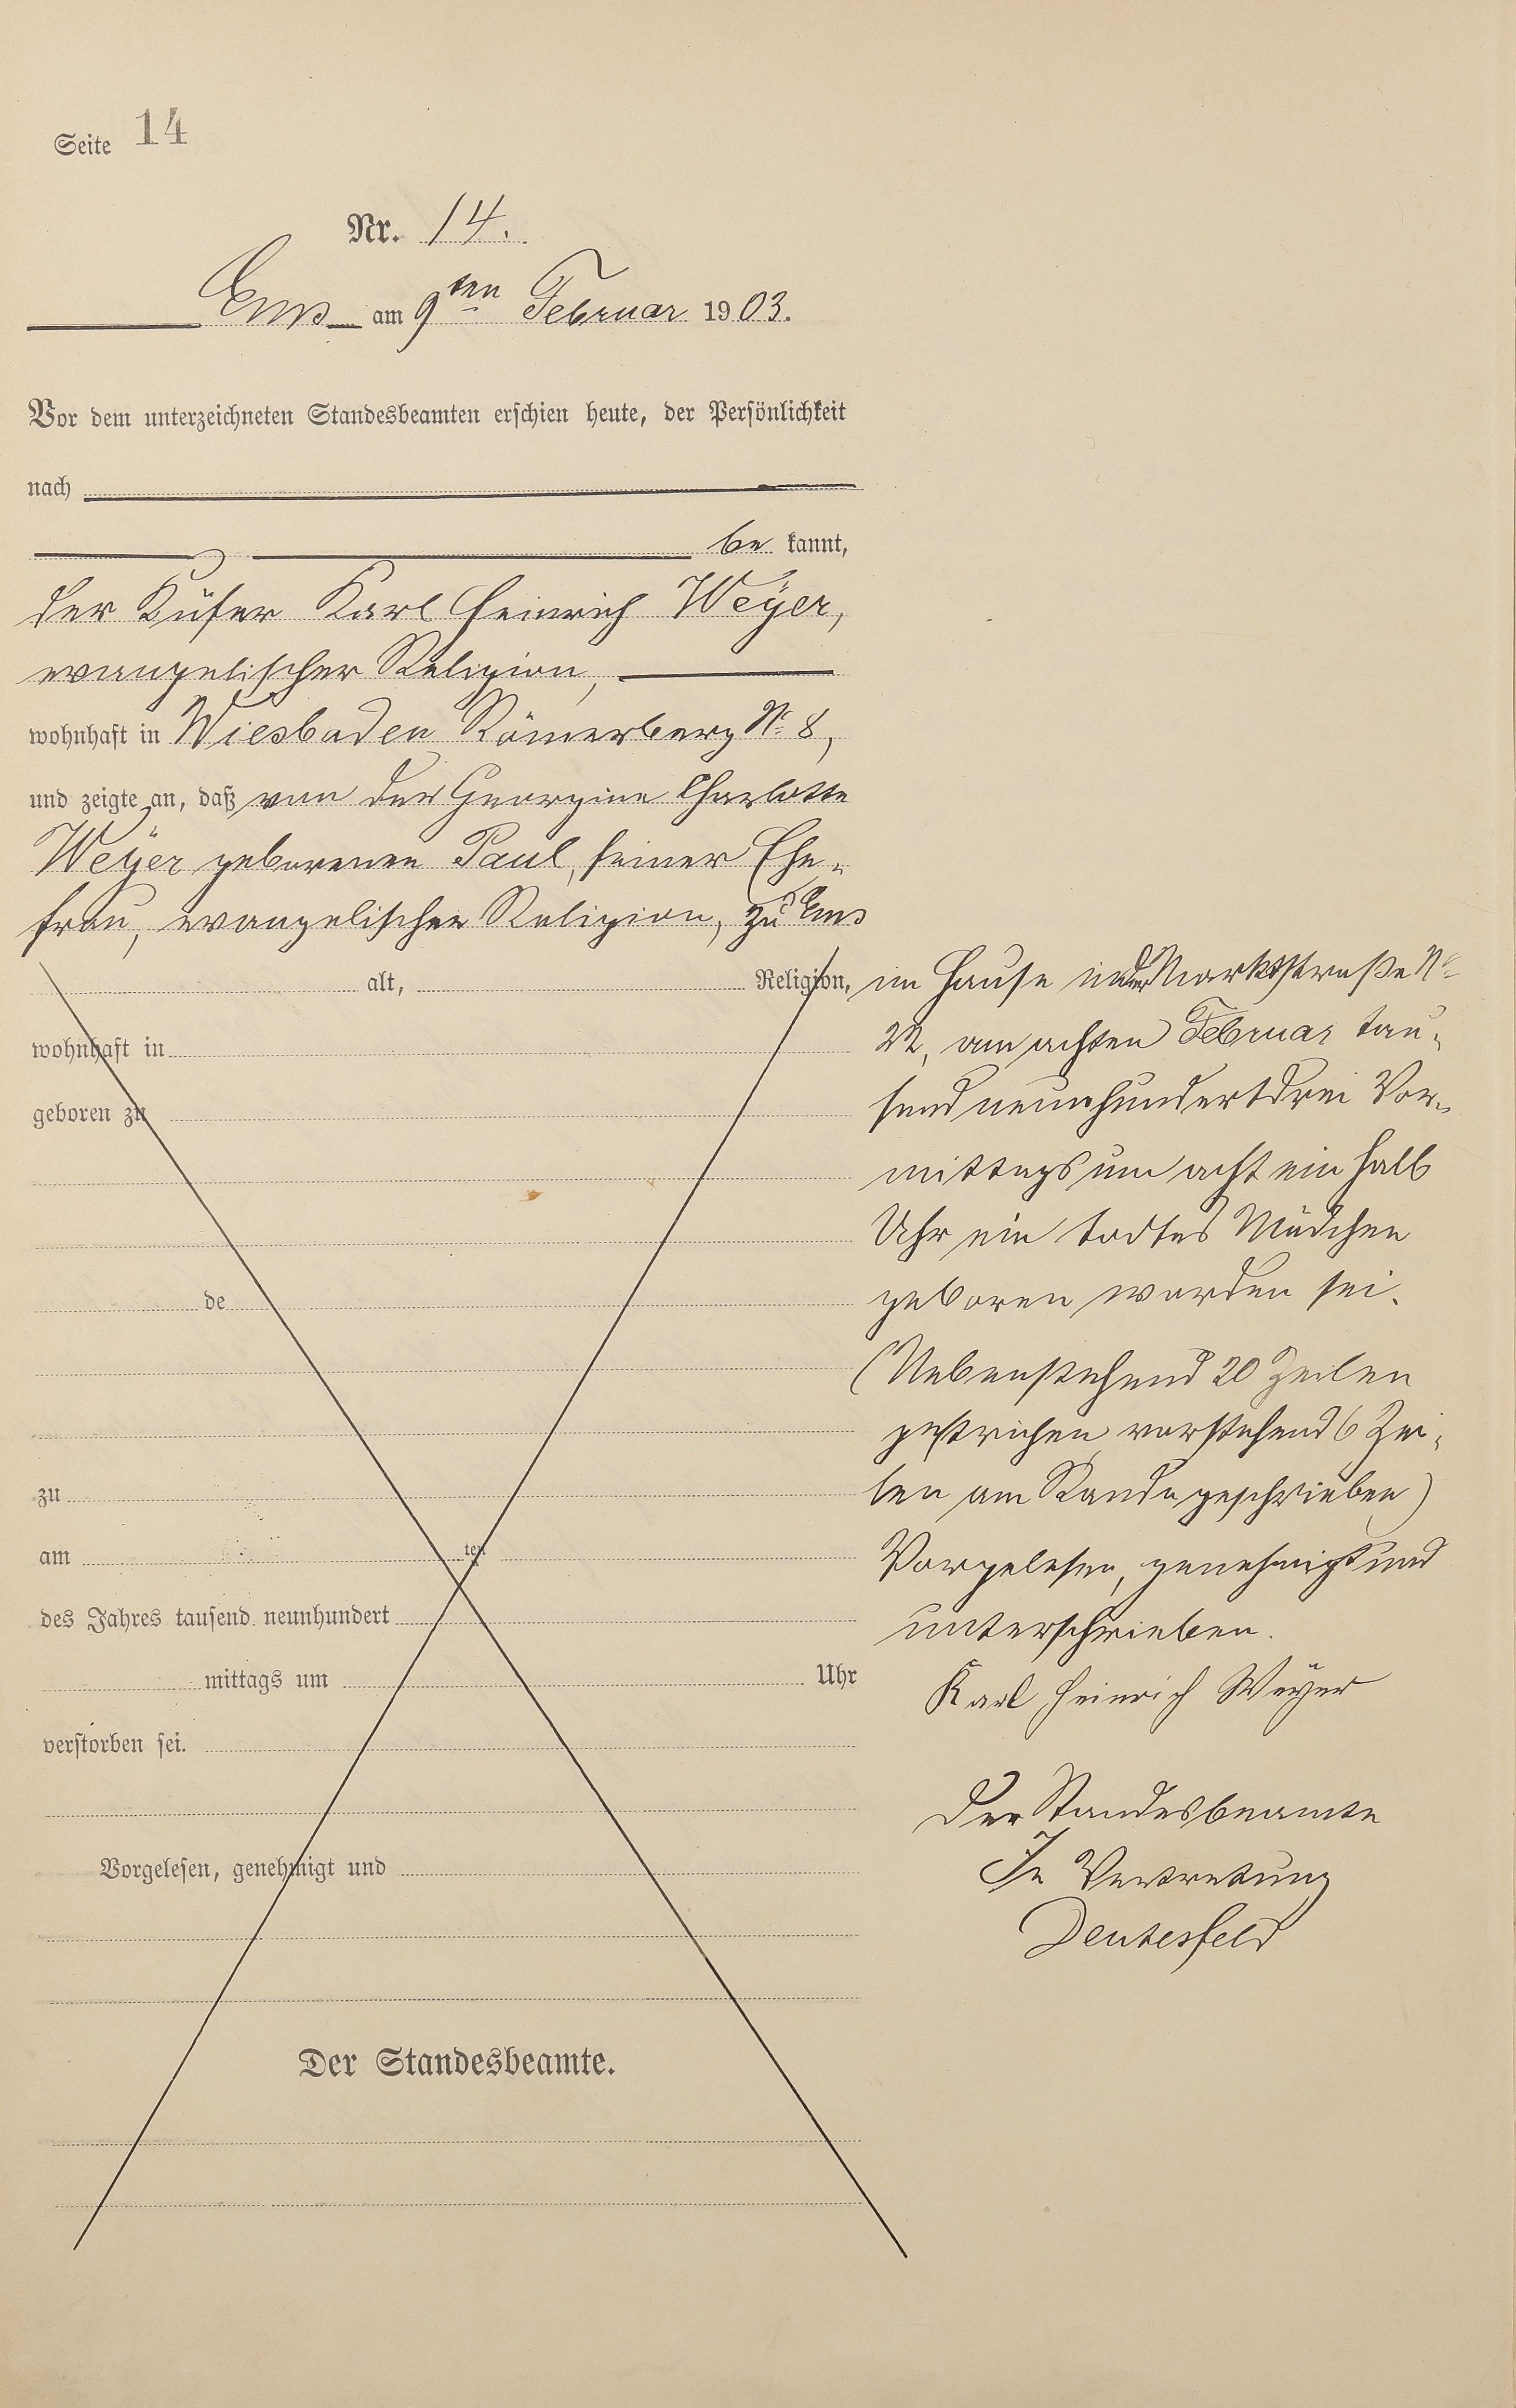 Seite 14
Nr. 14.
Ems am 9ten Februar 1903.
Vor dem unterzeichneten Standesbeamten erschien heute, der Persönlichkeit
nach
be kannt,
der Küfer Karl Heinrich Weÿer,
evangelischer Religion,
wohnhaft in Wiesbaden Römerberg No 8,
und zeigte an, daß von der Georgine Charlotte
Weÿer geborenen Paul, seiner Ehe-
frau, evangelischer Religion, zu Ems
alt, Religion,
wohnhaft in
geboren zu
de
zu
am ten
des Jahres tausend neunhundert
mittags um Uhr
verstorben sei.
Vorgelesen, genehmigt und
Der Standesbeamte.
im Hause in der Marktstraße No
22, am achten Februar tau-
send neunhundertdrei Vor-
mittags um acht ein halb
Uhr ein todtes Mädchen
geboren worden sei.
(Nebenstehend 20 Zeilen
gestrichen, vorstehend 6 Zei-
len am Rande geschrieben)
Vorgelesen, genehmigt und
unterschrieben.
Karl Heinrich Weÿer
Der Standesbeamte
In Vertretung
Deutesfeld